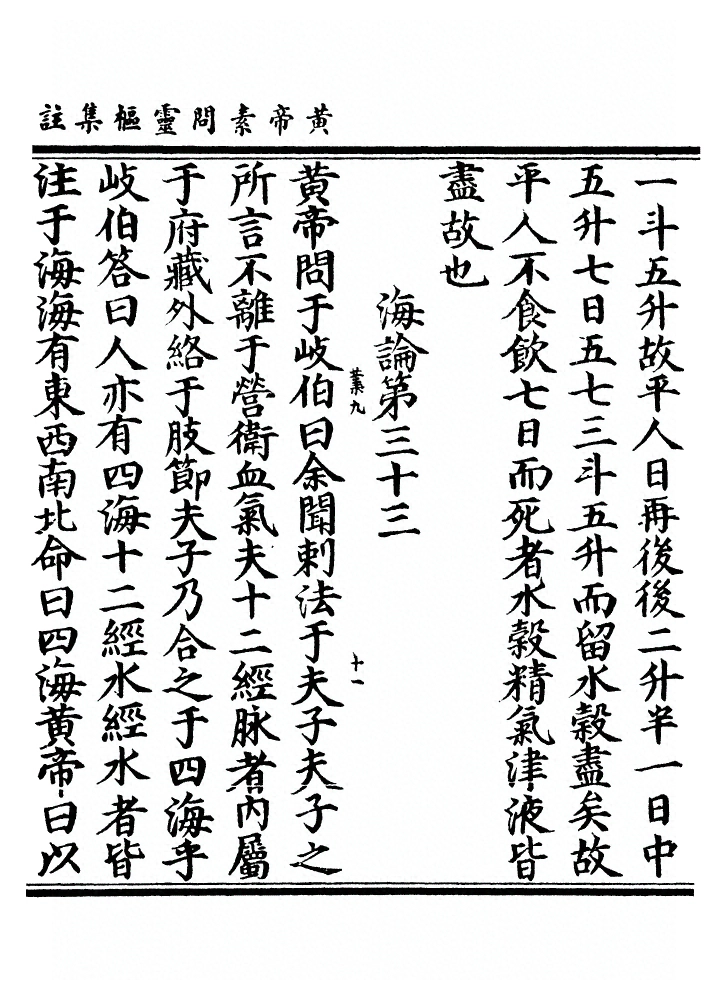 黃帝素問靈樞集註
一斗五升故平人日再後後二升半一日中
五升七日五七三斗五升而留水穀盡矣故
平人不食飲七日而死者水穀精氣津液皆
盡故也
海論第三十三
業九
十一
黃帝問于岐伯曰余聞刺法于夫子夫子之
所言不離于營衛血氣夫十二經脉者內屬
于府藏外絡于肢節夫子乃合之于四海乎
岐伯答曰人亦有四海十二經水經水者皆
注于海海有東西南北命曰四海黃帝曰以